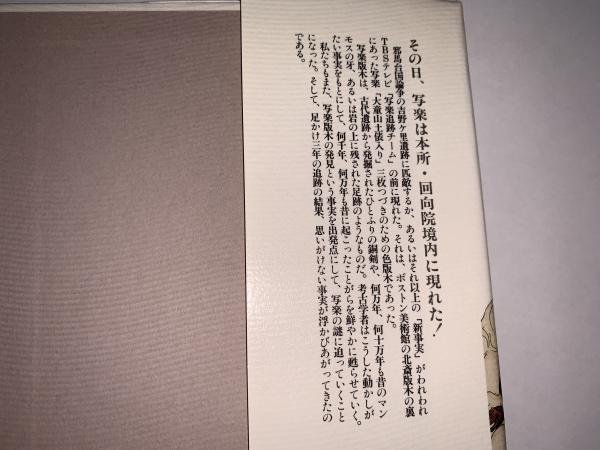 その日、写楽は本所・回向院境内に現れた!
邪馬台国論争の吉野ヶ里遺跡に匹敵するか、あるいはそれ以上の「新事実」がわれわれ
TBSテレビ「写楽追跡チーム」の前に現れた。それは、ボストン美術館の北斎版木の裏
にあった写楽「大童山土俵入り」三枚つづきのための色版木であった。
写楽版木は、古代遺跡から発掘されたひとふりの銅剣や、何万年、何十万年も昔のマン
モスの牙、あるいは岩の上に残された足跡のようなものだ。考古学者はこうした動かしが
たい事実をもとにして、何千年、何万年も昔に起こったことがらを鮮やかに甦らせていく。
私たちもまた、写楽版木の発見という事実を出発点にして、写楽の謎に迫っていくこと
になった。そして、足かけ三年の追跡の結果、思いがけない事実が浮かびあがってきたの
である。